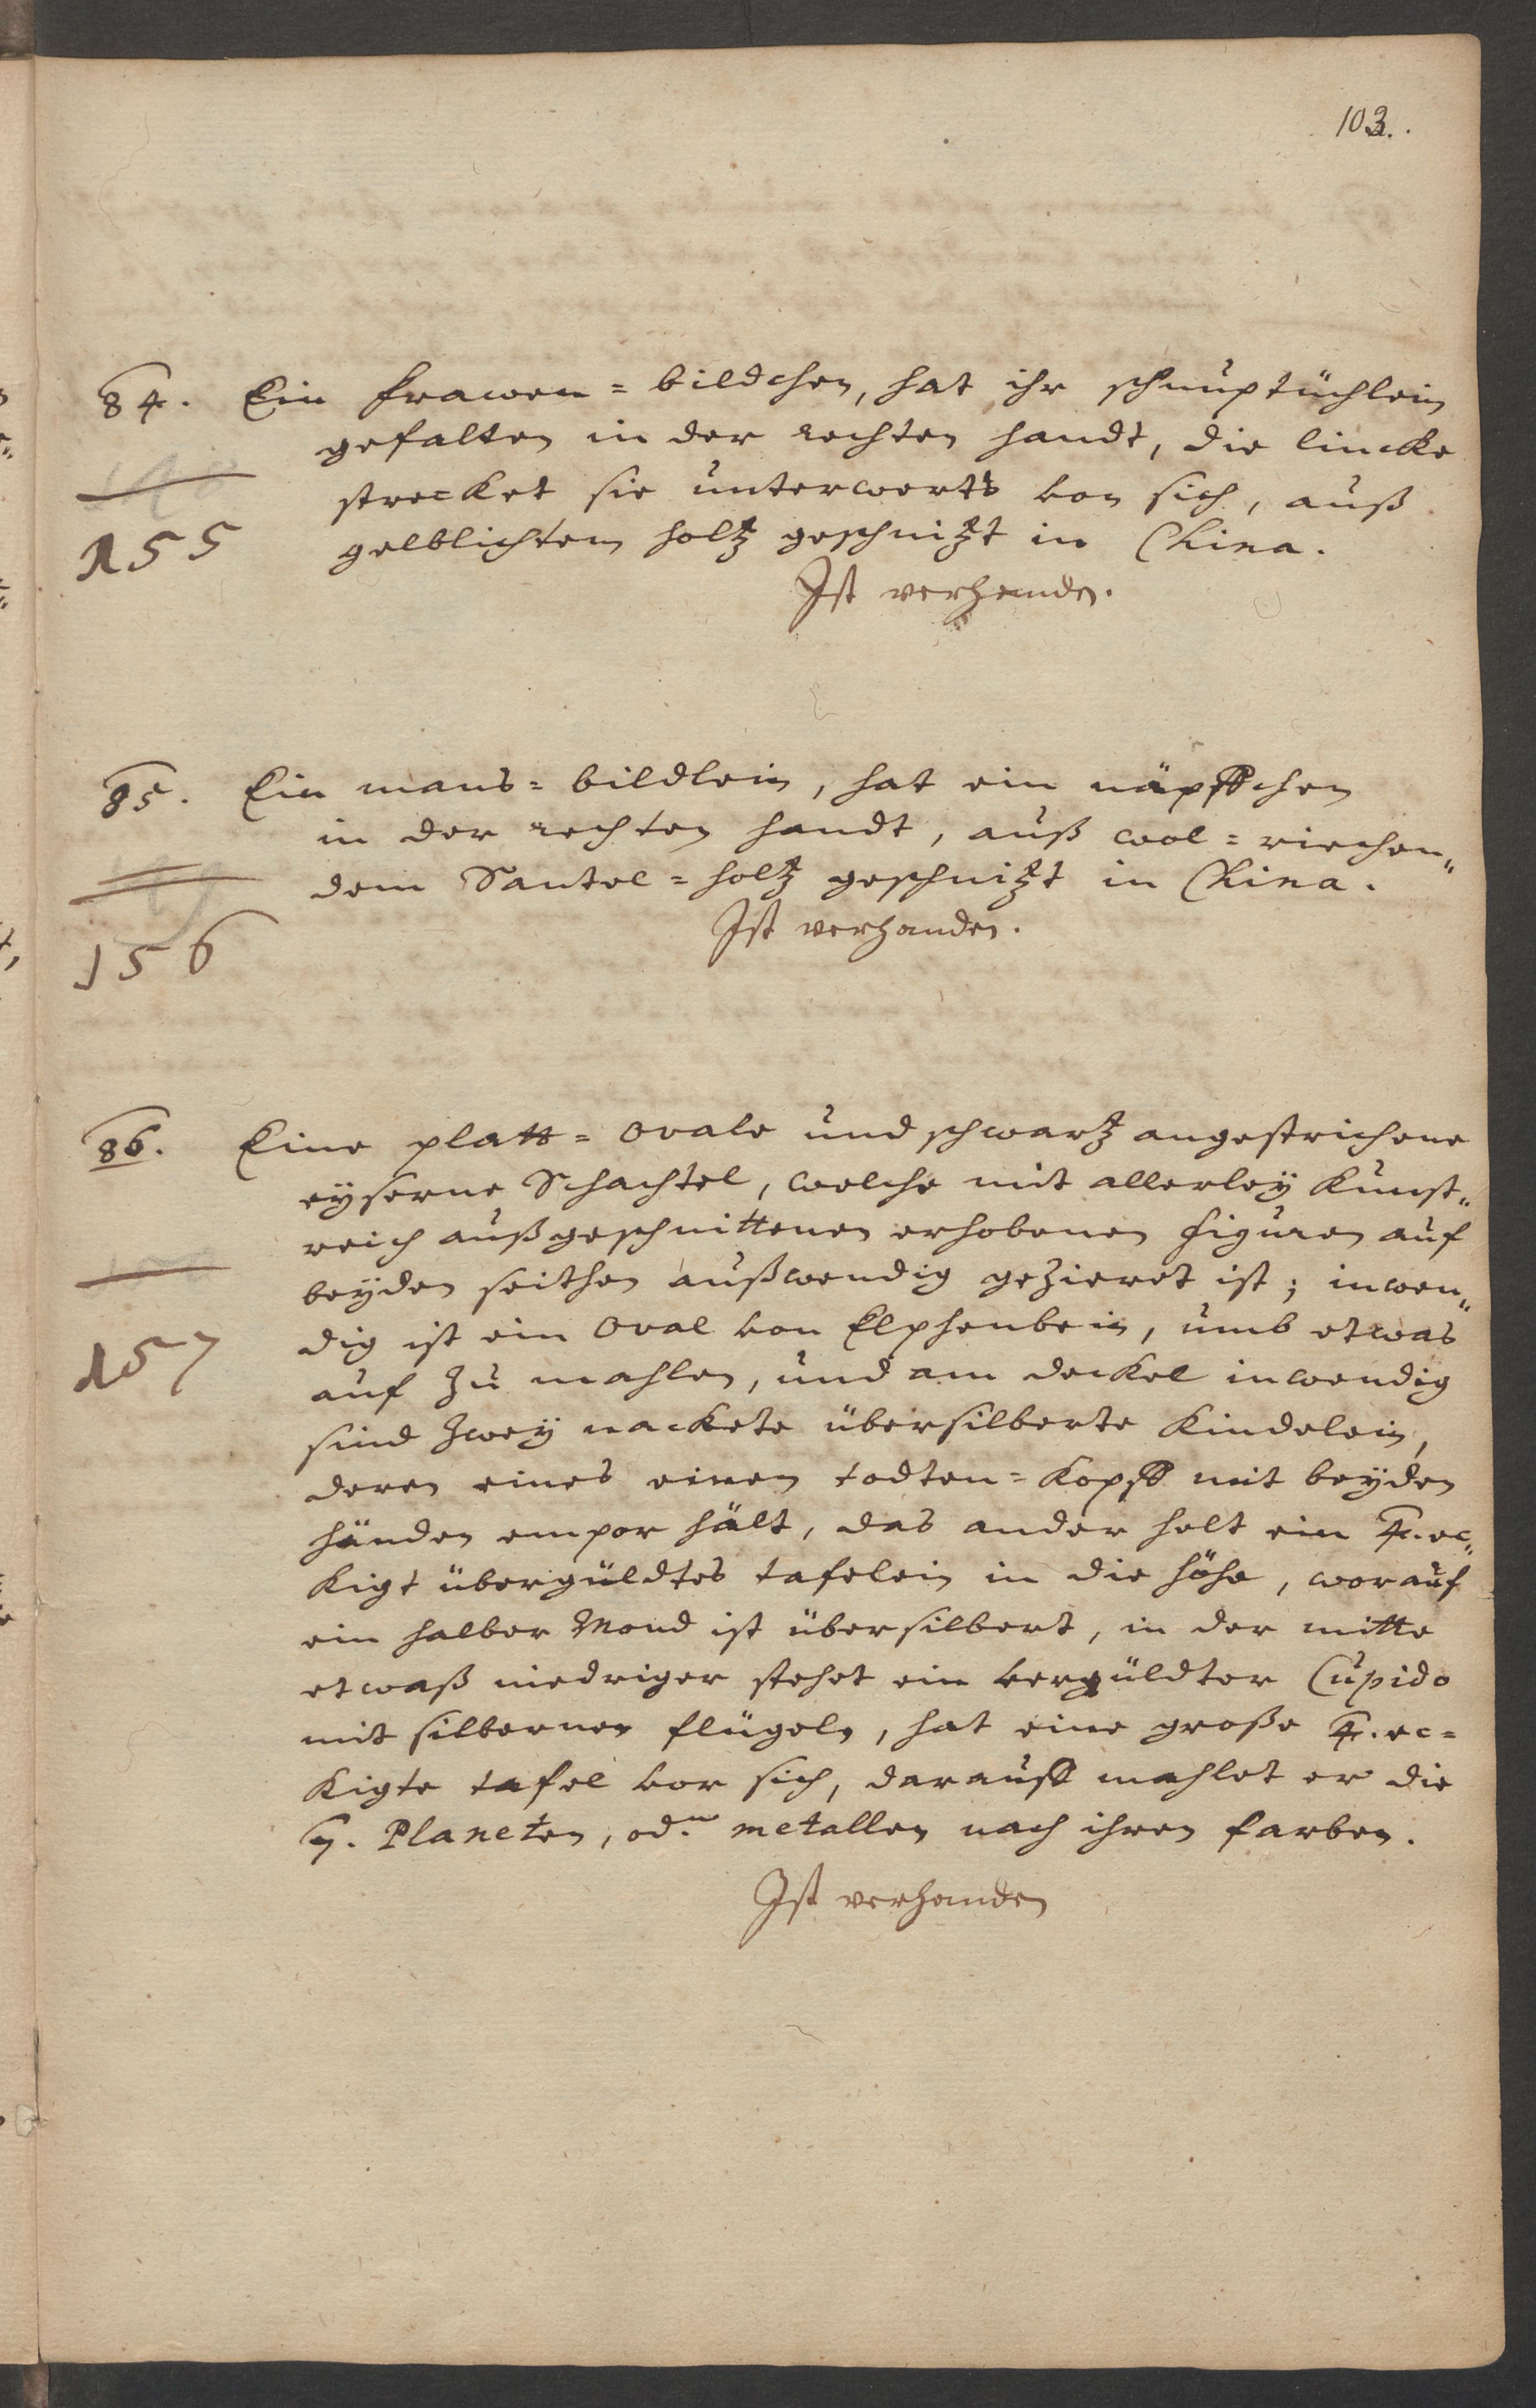 103.
84. Ein frawen = bildchen, hat ihr schnuptüchlein
gefalten in der rechten handt, die lincke
strecket sie unterwerts von sich, auß
155
gelblichtem holtz geschnitzt in China.
Ist verhanden.
85. Ein mans = bildlein, hat ein näpffchen
in der rechten handt, auß wol = riechen„
dem Santel = holtz geschnitzt in China.
156
Ist verhanden.
86. Eine platt = Ovale und schwartz angestrichene
eyserne Schachtel, welche mit allerleÿ Kunst„
reich außgeschnittenen erhobenen figuren auf
beÿden seithen außwendig gezieret ist; inwen„
dig ist ein Oval von Elphenbein, umb etwas
157
auf zu mahlen, und am deckel inwendig
sind zweÿ nackete übersilberte Kindelein,
deren eines einen todten = Kopff mit beÿden
händen empor hält, das ander helt ein 4. ec„
kigt übergüldtes tafelein in die höhe, worauf
ein halber Mond ist übersilbert, in der mitte
etwaß niedriger stehet ein vergüldter Cupido
mit silbernen flügeln, hat eine große 4. ec =
kigte tafel vor sich, darauff mahlet er die
7. Planeten, od. metallen nach ihren farben.
Ist verhanden